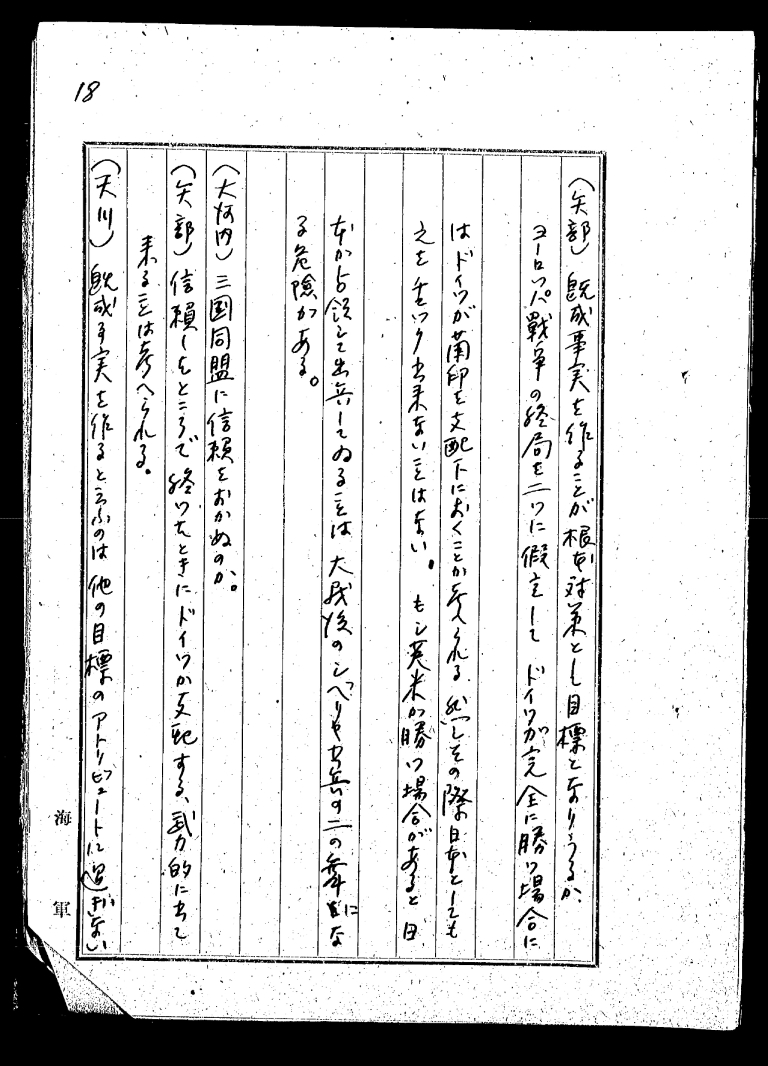 18
(矢部) 既成事実を作ることが根本対策とし目標となりうるか、
ヨーロッパ戦争の終局を二つに假定して ドイツが完全に勝つ場合に
はドイツが蘭印を支配下におくことが考へられる、然しその際日本としても
之をチェック出来ないことはない。 もし英米が勝つ場合があると 日
本が占領して出兵してゐることは 大戦後のシベリヤ出兵の二の舞になる
る危險がある。
(大河内) 三国同盟に信頼をおかぬのか。
(矢部) 信頼しをところで 終つたときに ドイツが支配する、武力的に出て
来ることは考へられる。
(天川) 既成事実を作ると云ふのは 他の目標のアトリビュートに過ぎない
海軍